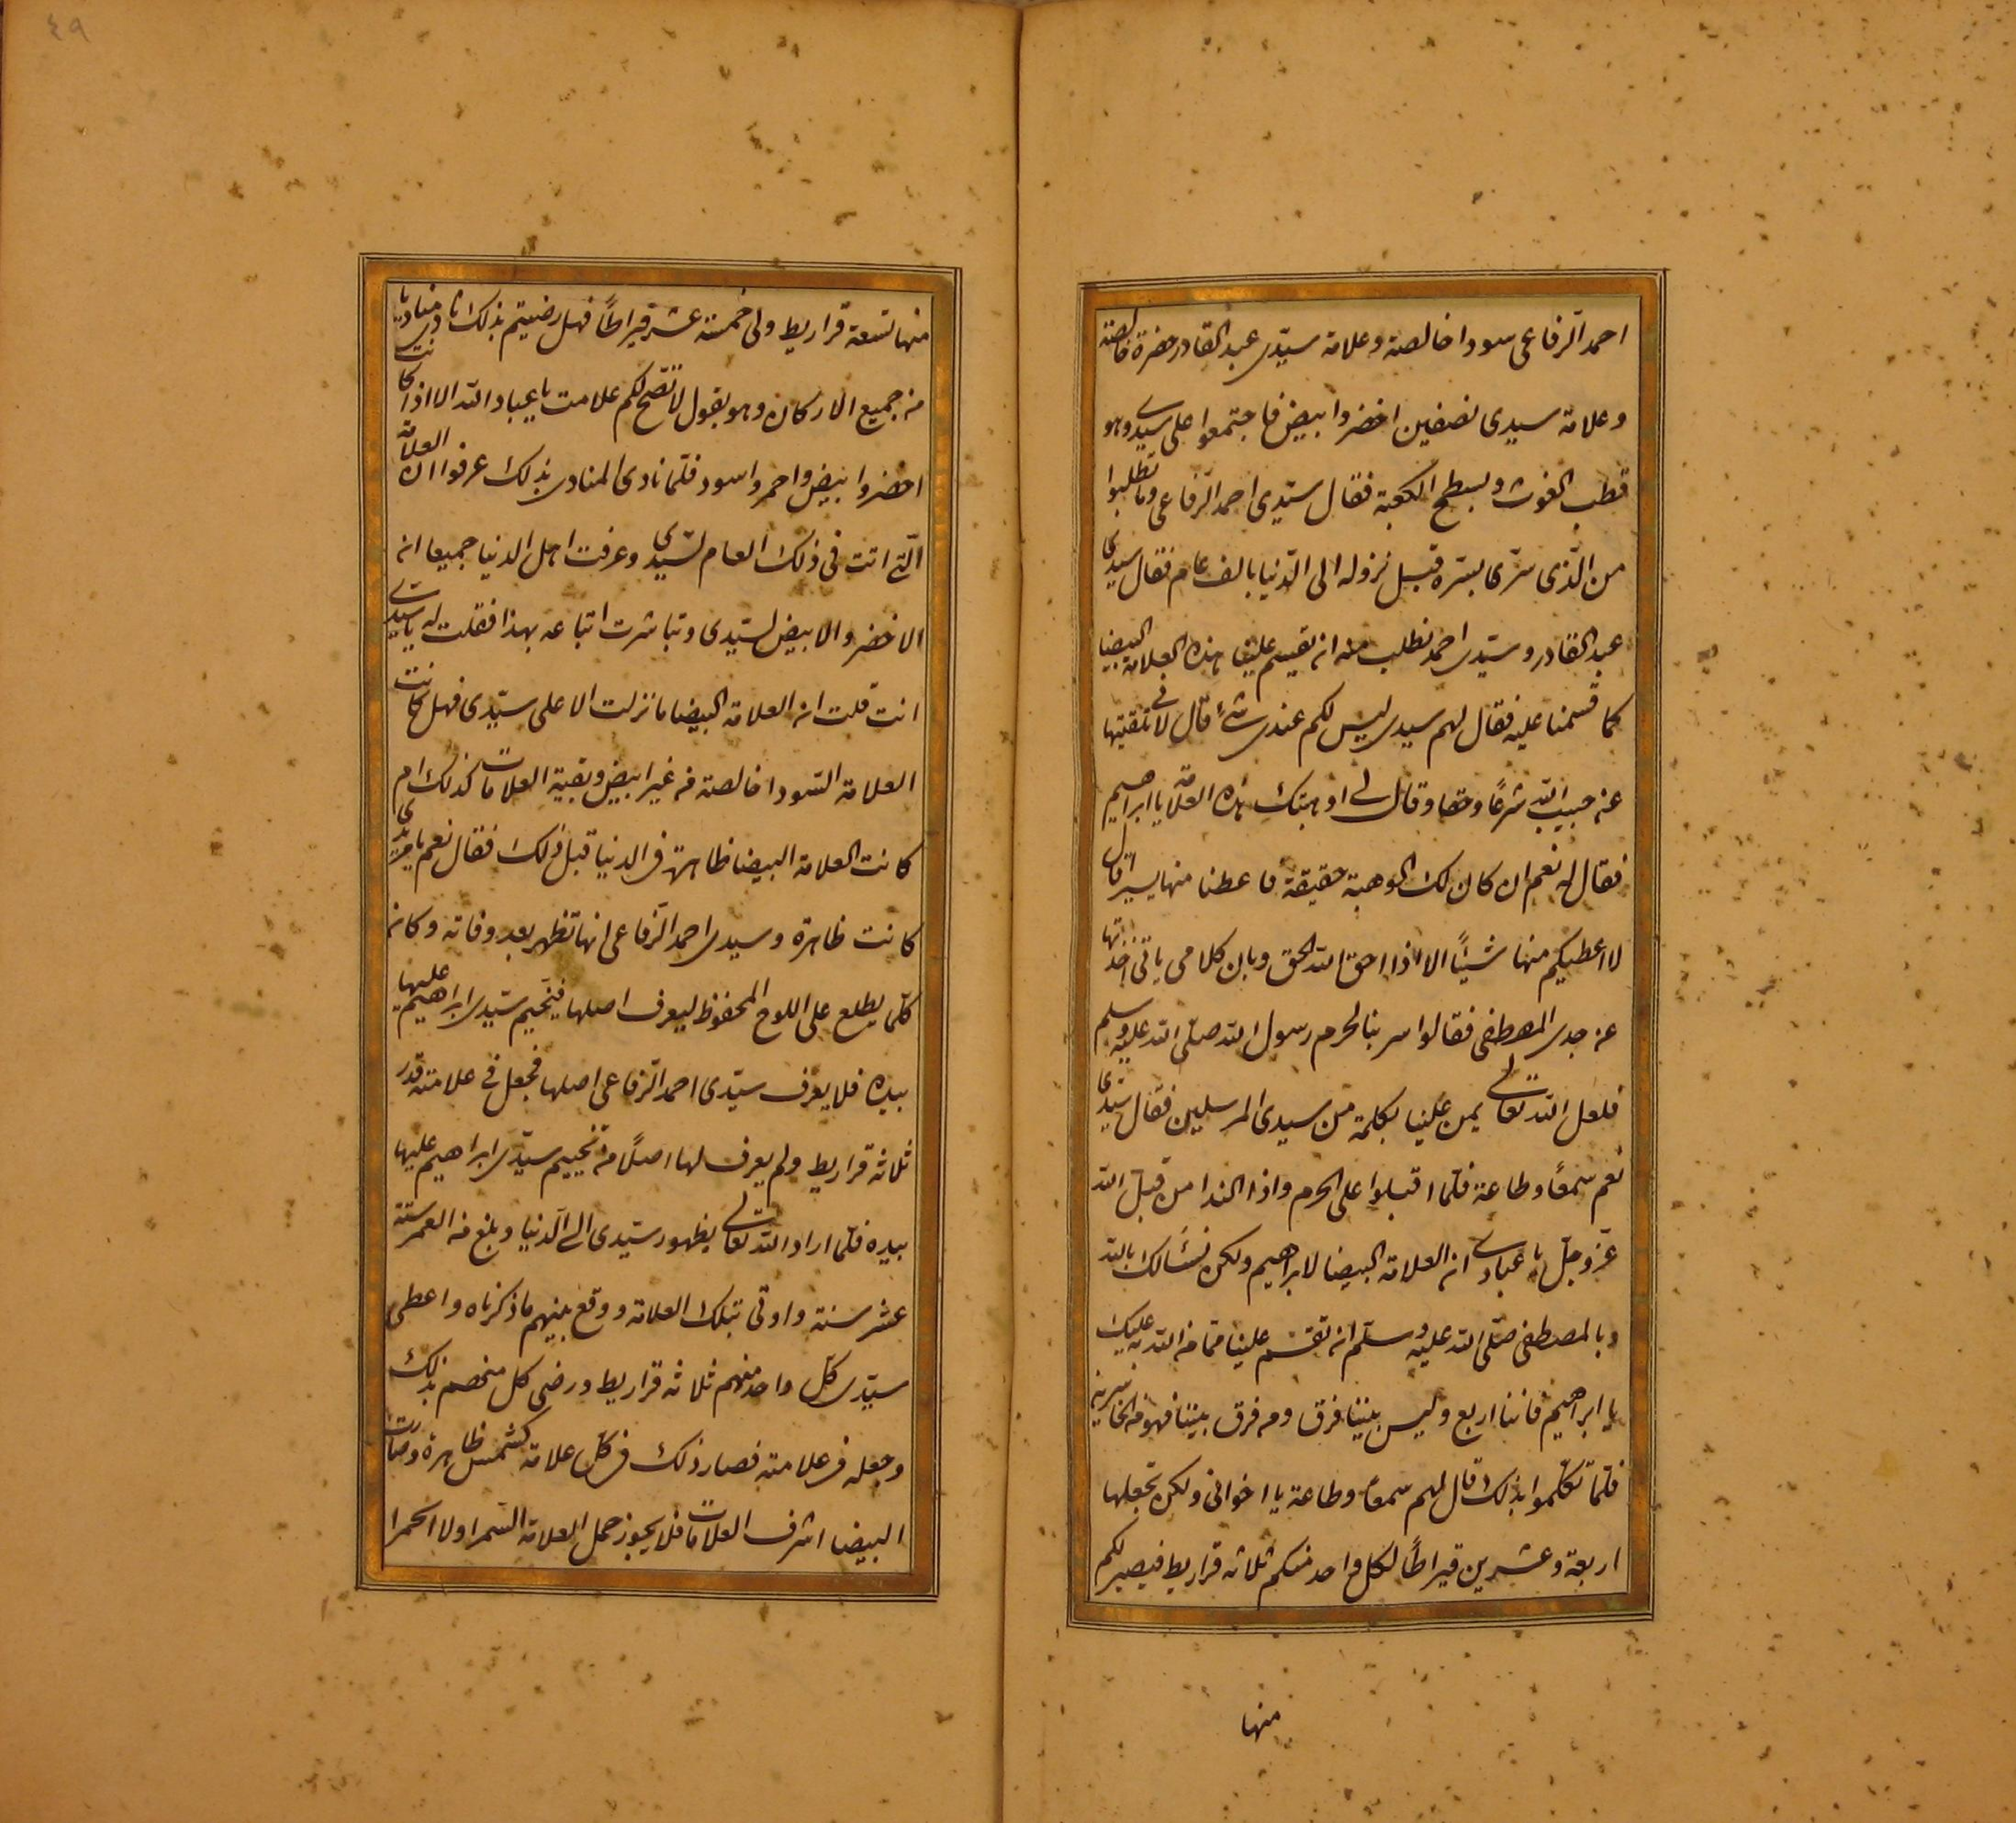 احمد الرفاعى سودا خالصة وعلامة سيدى عبد القادر خضرة خالصة
وعلامة سيدى نصفين اخضر وابيض فاجتمعوا على سيدى وهو
قطب الغوث وبسطح الكعبة فقال سيدى احمد الرفاعى وما تطلبوا
من الذى سرى بسره قبل نزوله الى الدنيا بالف عام فقال سيدى
عبد القادر وسيدى احمد نطلب منه ان تقسم علينا هذه العلامة البيضا
كما قسمنا عليه فقال لهم سيدى ليس لكم عندى شئ قال لانى تلقيتها
عن حبيب الله شرعًا وحقا وقال لى اوهبتك هذه العلامة يا ابراهيم
فقال له نعم ان كان لك الوهبة حقيقة فاعطنا منها يسير قال
لا اعطيكم منها شيئًا الا اذا احق الله الحق وبان كلامى بانى اخذتها
عن جدى المصطفى فقالوا سر بنا لحرم رسول الله صلى الله عليه وسلم
فلعل الله تعالى يمن علينا بكلمة من سيدى المرسلين فقال سيدى
نعم سمعًا وطاعة فلما اقبلوا على الحرم واذا الندا من قبل الله
عز وجل يا عبادى ان العلامة البيضا لابراهيم ولكن نسألك بالله
وبالمصطفى صلى الله عليه وسلم ان تقسم علينا مما من الله به عليك
يا ابراهيم فاننا اربع وليس بيننا فرق ومن فرق بيننا فهو من الخاسرين
فلما تكلموا بذلك قال لهم سمعًا وطاعة يا اخوانى ولكن نجعلها
اربعة وعشرين قيراطًا لكل واحد منكم ثلاثه قراريط فيصير لكم
منها
٤٩
منها تسعة قراريط ولى خمسة عشر قيراطًا فهل رضيتم بذلك نادى مناديا
من جميع الاركان وهو يقول لا تصح لكم علامت يا عباد الله الا اذا كانت
اخضر وابيض واحمر واسود فلما نادى المنادى بذلك عرفوا ان العلامة
التى اتت فى ذلك العام لسيدى وعرفت اهل الدنيا جميعا انه
الاخضر والابيض لسيدى وتباشرت اتباعه بهذا فقلت له يا سيدى
انت قلت ان العلامة البيضا ما نزلت الا على سيدى فهل كانت
العلامة السودا خالصة من غير ابيض وبقية العلامات كذلك ام
كانت العلامة البيضا ظاهرة فى الدنيا قبل ذلك فقال نعم يا
كانت ظاهرة وسيدى احمد الرفاعى انها تظهر بعد وفاته وكان
كلما يطلع على اللوح المحفوظ ليعرف اصلها فيخيم سيدى ابراهيم عليها
بيده فلا يعرف سيدى احمد الرفاعى اصلها فجعل فى علامته قدر
ثلاثه قراريط ولم يعرف لها اصلًا من تخييم سيدى ابراهيم عليها
بيده فلما اراد الله تعالى بظهور سيدى الى الدنيا وبلغ من العمر ستة
عشر سنة واوتى بتلك العلامة ووقع بينهم ما ذكرناه واعطى
سيدى كل واحد منهم ثلاثه قراريط ورضى كل منهم بذلك
وجعله فى علامته فصار ذلك فى كل علامة كشمس ظاهرة وصارت
البيضا اشرف العلامات فلا يجوز حمل العلامة السمرا ولا الحمرا